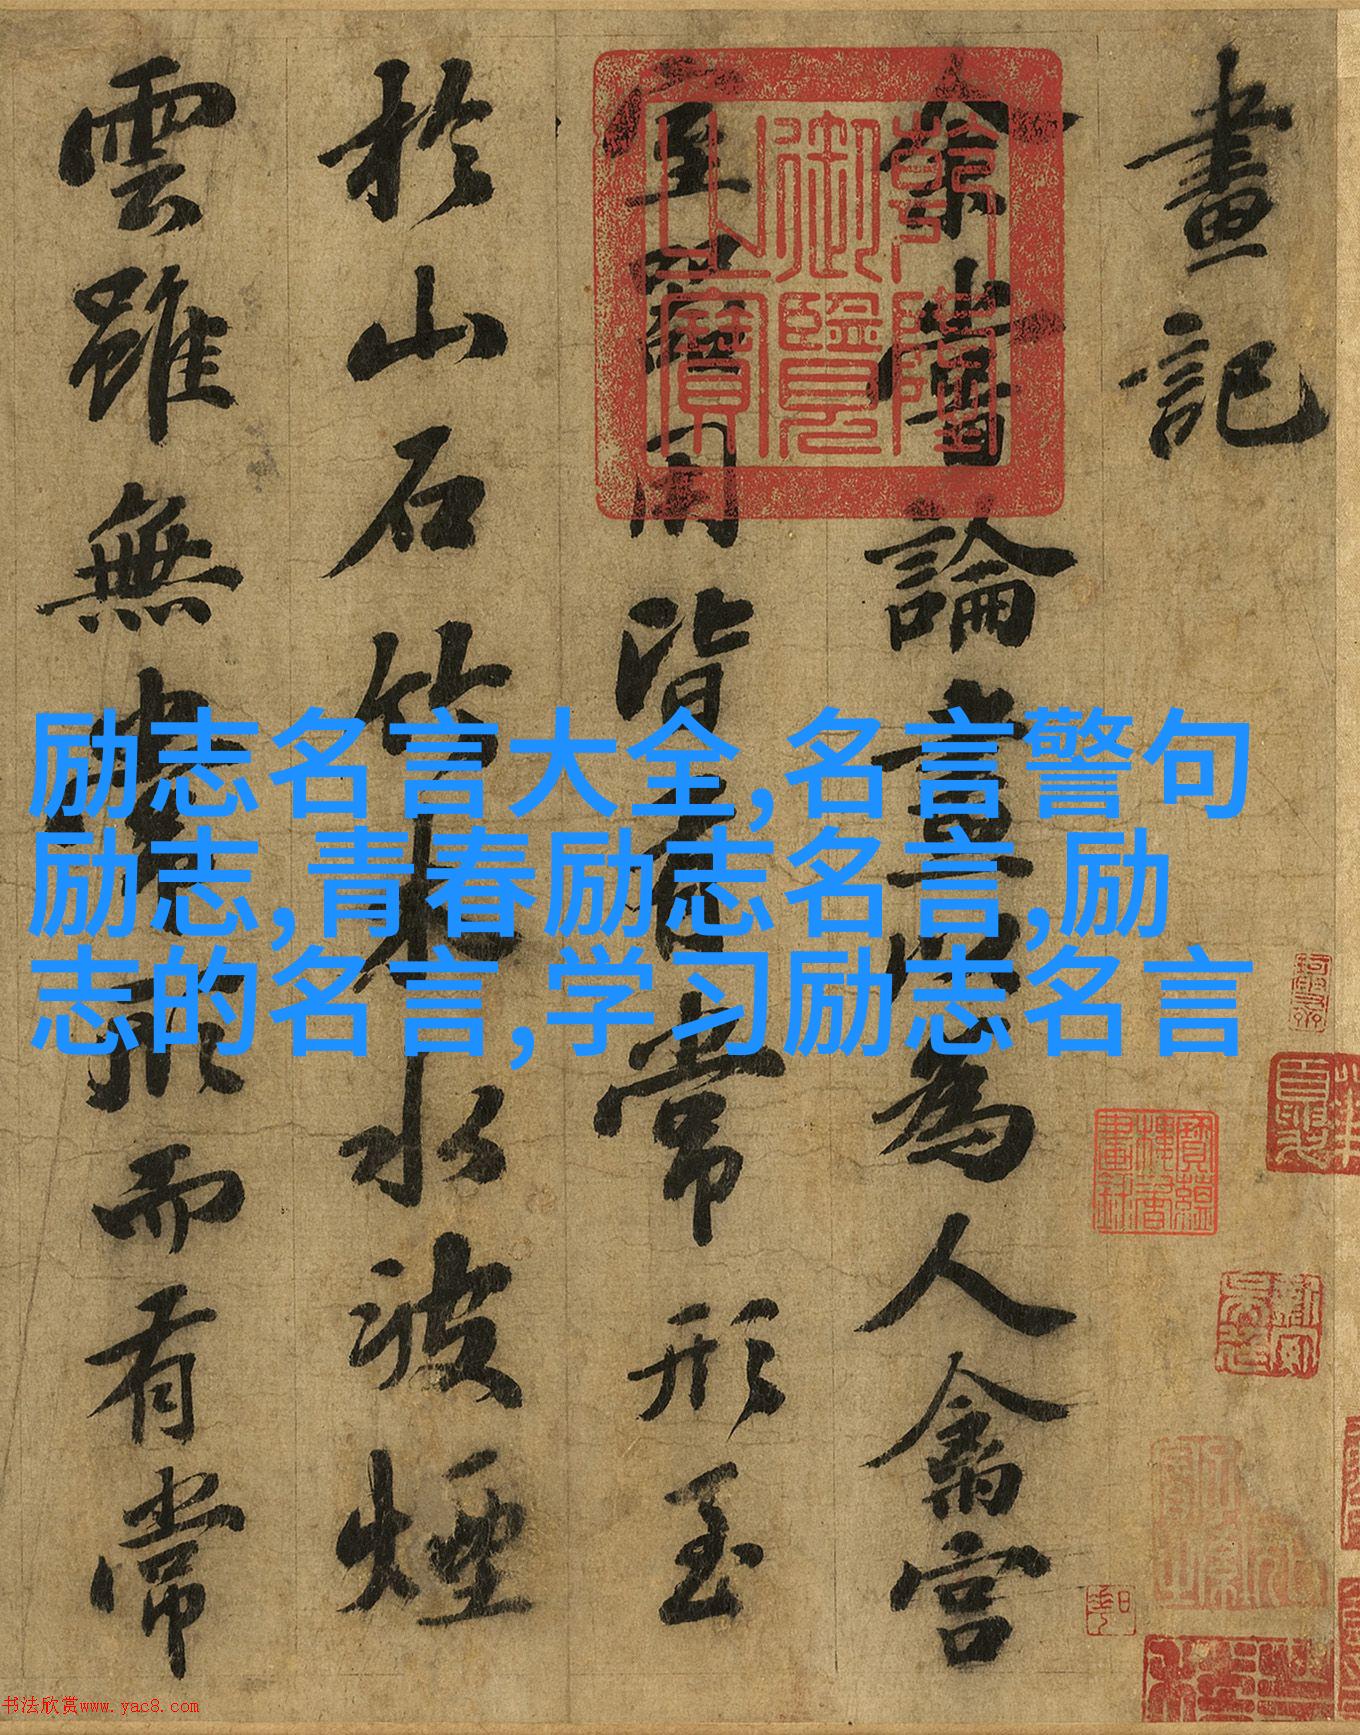 畫記
余嘗論畫以為人禽宮
室器用皆有常形至
於山石竹木水波煙
雲雖無常形而有常
乾隆
御覽
之寶
励志名言大全,名言警句
励志,青春励志名言,励
志的名言,学习励志名言
书法欣赏www.yac8.com